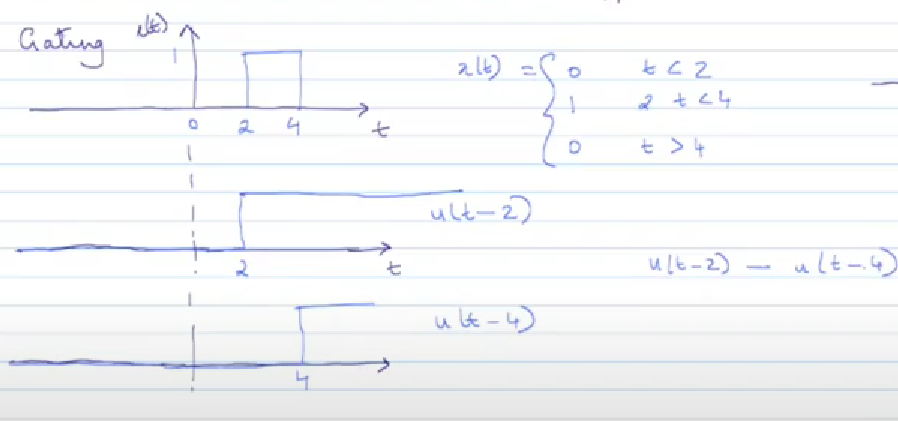 Gating x(t)
1
0 2 4 t
x(t) = { 0 t < 2
1 2 t < 4
0 t > 4
u(t-2)
2 t
u(t-2) — u(t-4)
u(t-4)
4